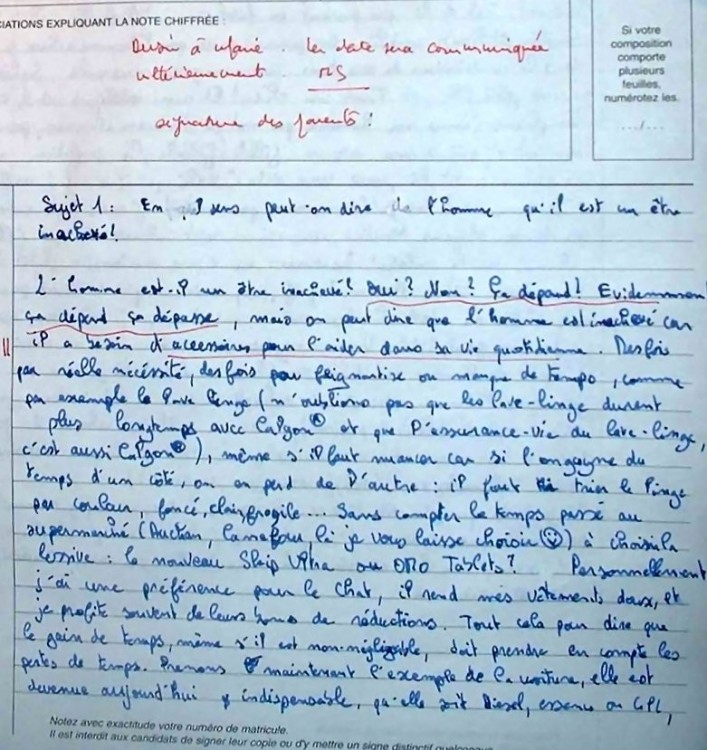 CIATIONS EXPLIQUANT LA NOTE CHIFFRÉE :
Devoir à refaire. La date sera communiquée
ultérieurement. NS
signature des parents :
Si votre
composition
comporte
plusieurs
feuilles,
numérotez-les.
.../...
Sujet 1 : En quel sens peut-on dire de l'homme qu'il est un être
inachevé ?
L'homme est-il un être inachevé ? Oui ? Non ? Ça dépend ! Evidemment
ça dépend ça dépasse, mais on peut dire que l'homme est inachevé car
il a besoin d'accessoires pour l'aider dans sa vie quotidienne. Des fois
par réelle nécessité, des fois par feignantise ou manque de temps, comme
par exemple le lave linge (n'oublions pas que les lave-linge durent
plus longtemps avec Calgon® et que l'assurance-vie du lave-linge,
c'est aussi Calgon®), même s'il faut nuancer car si l'on gagne du
temps d'un côté, on en perd de l'autre : il faut trier le linge
par couleur, foncé, clair, fragile... Sans compter le temps passé au
supermarché (Auchan, Carrefour, là je vous laisse choisir ☺) à choisir la
lessive : le nouveau Skip Ultra ou OMO Tablets ? Personnellement
j'ai une préférence pour le Chat, il rend mes vêtements doux, et
je profite souvent de leurs bons de réductions. Tout cela pour dire que
le gain de temps, même s'il est non-négligeable, doit prendre en compte les
pertes de temps. Prenons maintenant l'exemple de la voiture, elle est
devenue aujourd'hui indispensable, qu'elle soit Diesel, essence ou GPL,
Notez avec exactitude votre numéro de matricule.
Il est interdit aux candidats de signer leur copie ou d'y mettre un signe distinctif quelconque